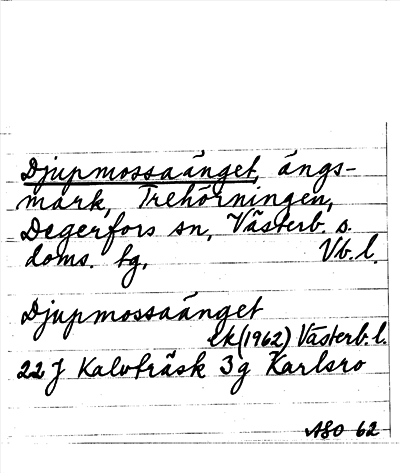 Djupmossaänget, ängs-
mark, Trehörningen,
Degerfors sn, Västerb. s.
doms. tg, Vb. l.
Djupmossaänget
ek (1962) Västerb. l.
22 J Kalvträsk 3g Karlsro
ASO 62